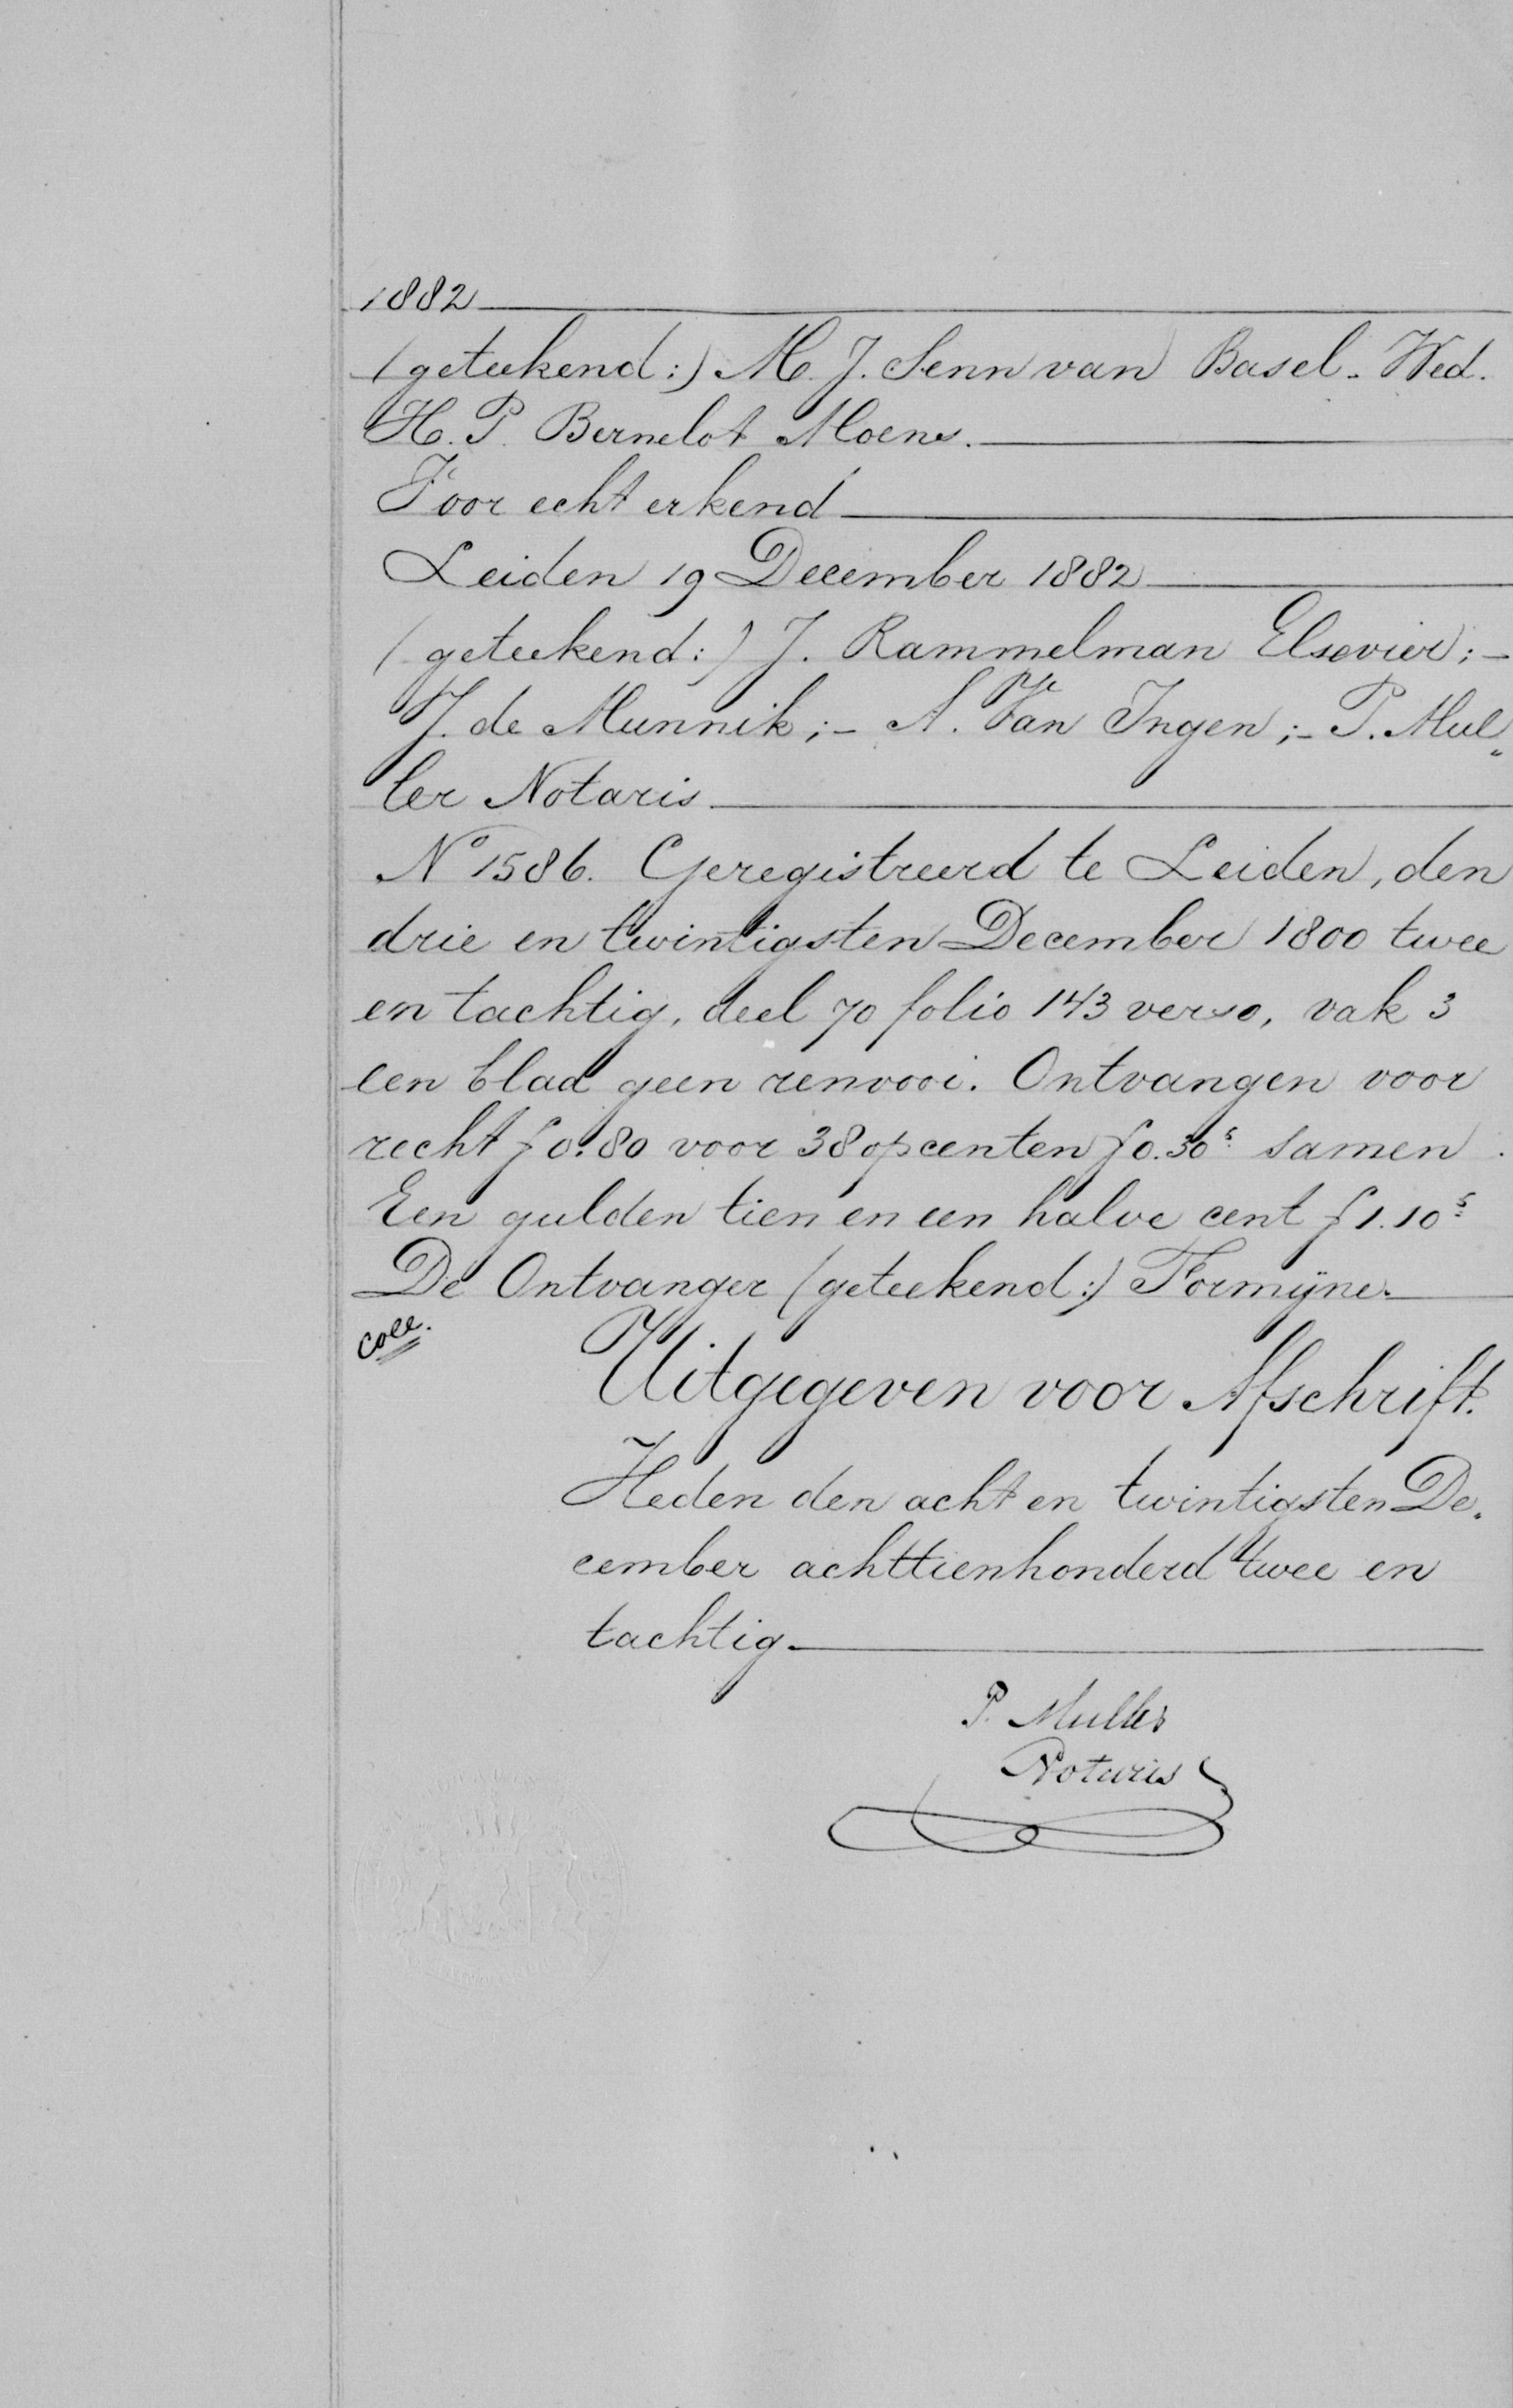 1882
(geteekend:) M. J. Senn van Basel. Wed.
H. P. Bernelot Moens.
Voor echt erkend
Leiden 19 December 1882
(geteekend:) J. Rammelman Elsevier;-
J. de Munnik;- A. Van Ingen;- P. Mul„
ler Notaris
No 1586. Geregistreerd te Leiden, den
drie en twintigsten December 1800 twee
en tachtig, deel 70 folio 143 verso, vak 3
een blad geen renvooi. Ontvangen voor
recht f 0.80 voor 38 opcenten f 0.30⁵ samen
Een gulden tien en een halve cent f 1.10⁵
De Ontvanger (geteekend:) Formijne.
Coll.
Uitgegeven voor Afschrift.
Heden den acht en twintigsten De„
cember achttienhonderd twee en
tachtig
P. Muller
Notaris